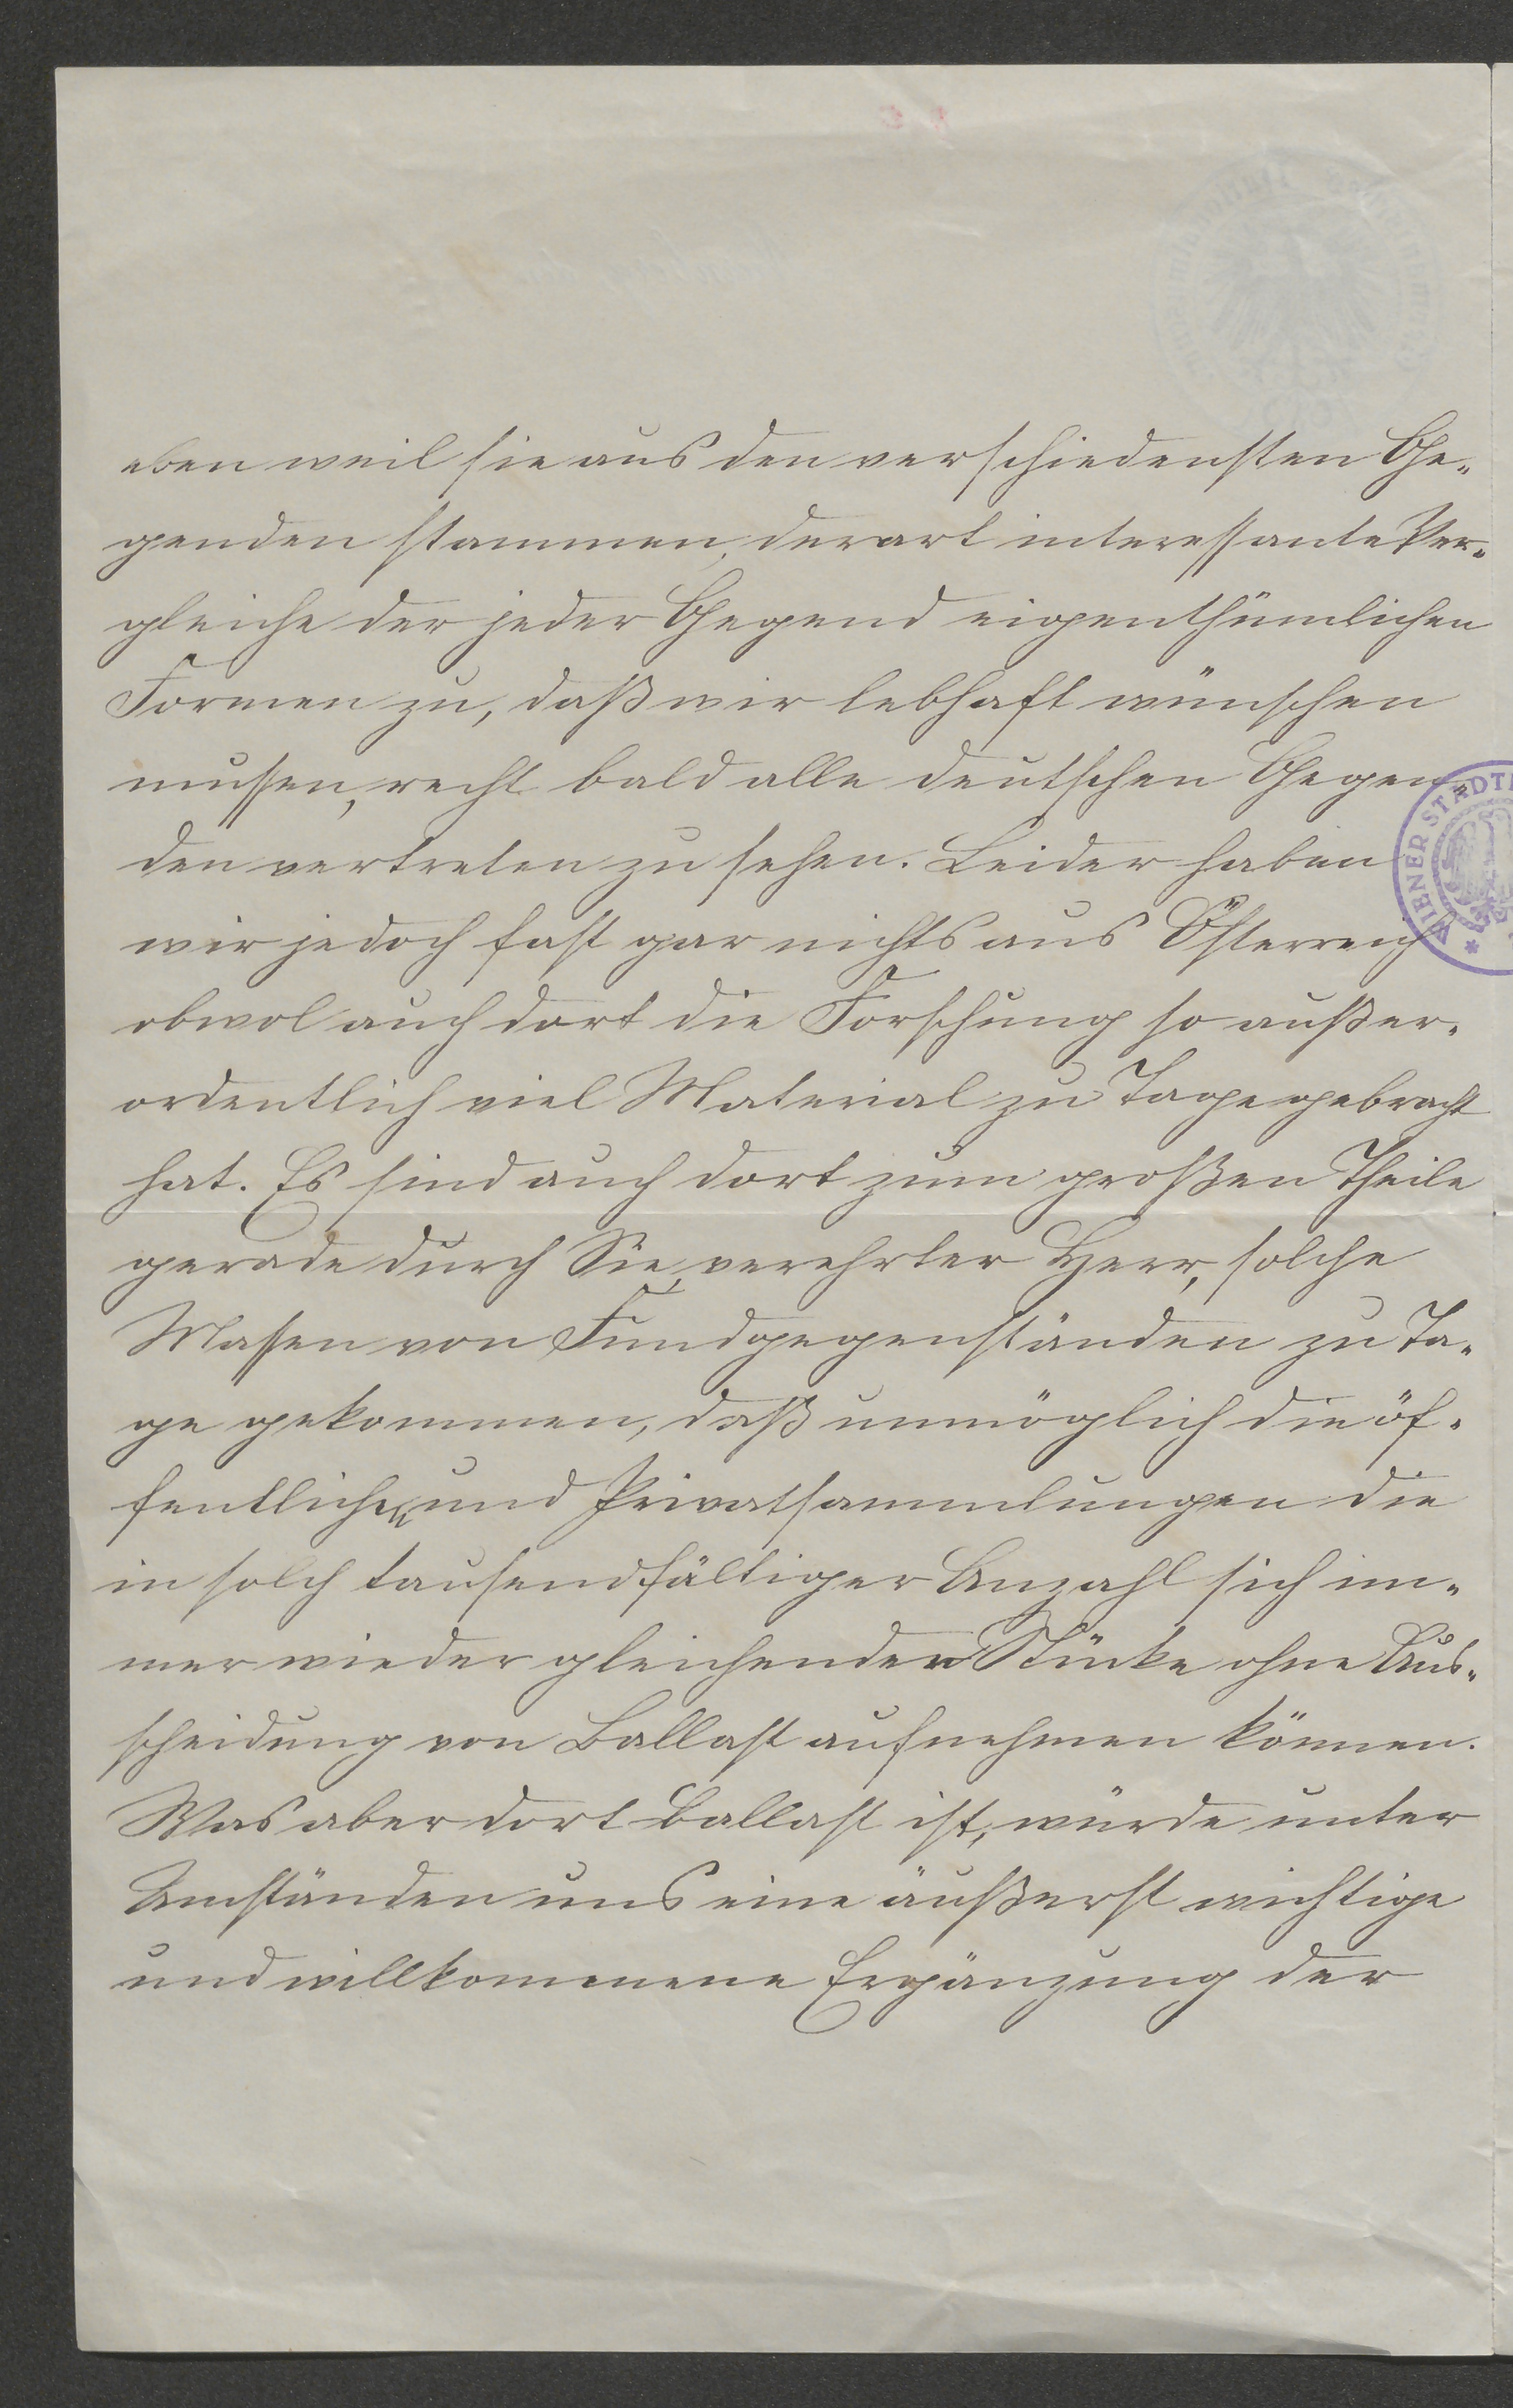 eben weil sie aus den verschiedensten Ge-
genden stammen, derart interessante Ver-
gleiche der jeder Gegend eigenthümlichen
Formen zu, daß wir lebhaft wünschen
mussen, recht bald alle deutschen Gegen-
den vertreten zu sehen. Leider haben
wir jedoch fast gar nichts aus Österreich
obwol auch dort die Forschung so außer-
ordentlich viel Material zu Tage gebracht
hat. Es sind auch dort zum großen Theile
gerade durch Sie, verehrter Herr, solche
Massen von Fundgegenständen zu Ta-
ge gekommen, daß unmöglich die öf-
fentlichen und Privatsammlungen die
in solch tausendfältiger Anzahl sich im-
mer wieder gleichenden Stücke ohne Aus-
scheidung von Ballast aufnehmen können.
Was aber dort Ballast ist, würde unter
Umständen uns eine äußerst wichtige
und willkommene Ergänzung der
WIENER STADT